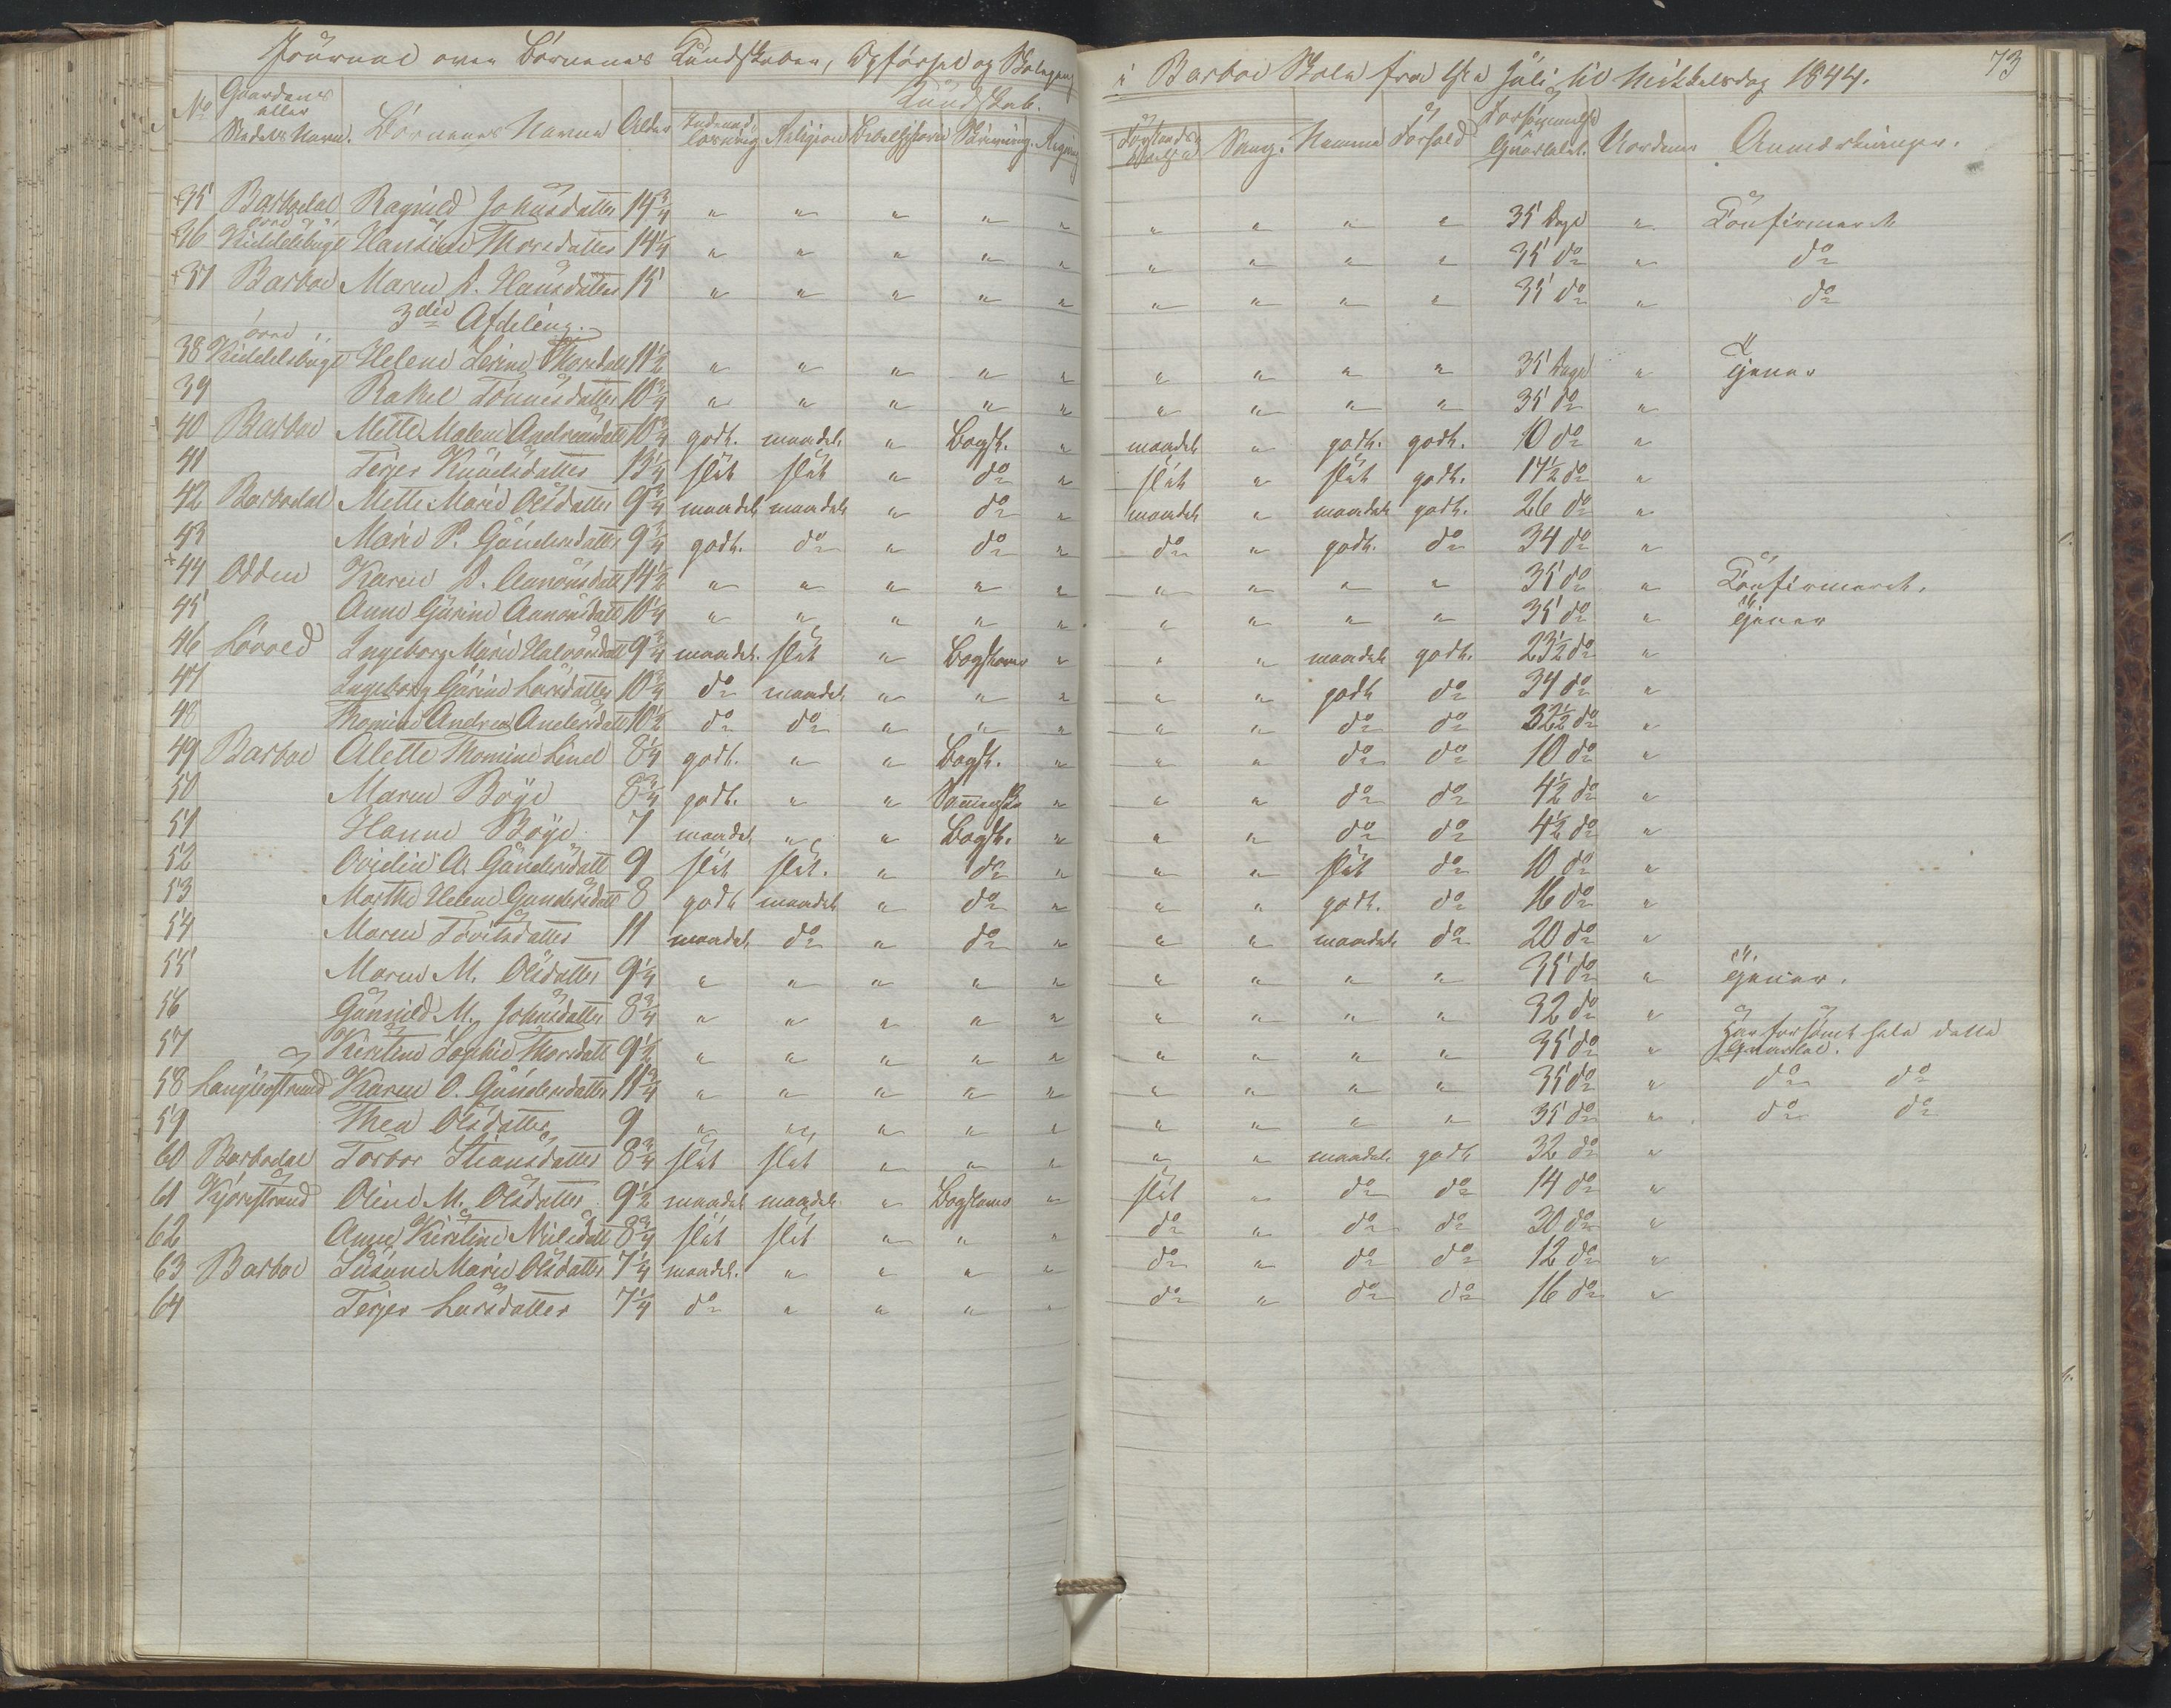 Journal over Börnenes Kundskaber, Opførsel og Skolegang i Barboe Skole fra 1ste Juli til Mikkelsdag 1844. 73
No Gaardens eller Stedets Navn. Börnenes Navne Alder Kundskab. Indenad-læsning Religion Bibelhistorie Skrivning. Regning Forstands Sang. Nemme Forhold Forsømmelse Qvartalet. Anmærkninger.
35 Barbodal Ragnild Johnsdatter 14 3/4 " " " " " " " " " 35 Dage " Confirmeret
36 övre Kiddelsbugt Hansine Thorsdatter 14 1/4 " " " " " " " " " 35 do "  do
37 Barboe Maren A. Hansdatter 15 " " " " " " " " " 35 do " do
3die Afdeling.
38 övre Kiddelsbugt Helene Serine Thorsdatt 11 1/2 " " " " " " " " " 35 Dage " tjener
39 Rakel Tönnesdatter 10 3/4 " " " " " " " " " 35 do "
40 Barboe Mette Malene Andreasdatt 10 3/4 godt. maadel. " Bogst. " maadel " godt. godt. 10 do "
41 Terjer Knudsdatter 13 1/4 slet slet " do " slet " slet godt. 17 1/2 do "
42 Barbodal Mette Marie Olsdatter 9 3/4 maadel. maadel. " do " maadel " maadel godt. 26 do "
43 Marie P. Gundersdatter 9 3/4 godt. do " do " do " godt. do 34 do "
44 Odden Karen A. Aanonsdatt 14 1/2 " " " " " " " " " 35 do " Confirmeret.
45 Anne Gurine Aanonsdatt 10 1/4 " " " " " " " " " 35 do " tjener
46 Lövold Ingeborg Marie Halvorsdatt 9 3/4 maadel. slet " Bogstaver " " " maadel godt. 23 1/2 do "
47 Ingeborg Gurine Larsdatter 10 3/4 do maadel " " " " " godt do 34 do "
48 Thomine Andrea Andersdatt 10 1/2 do do " " " " " do do 32 1/2 do "
49 Barboe Alette Thomine Lind 8 1/4 godt. " " Bogst. " " " do do 10 do "
50 Maren Böye 8 3/4 godt. " " " " " do do 4 1/2 do "
51 Hanne Böye 7 maadel " " Bogst. " " " do do 4 1/2 do "
52 A. Gundersdatt 9 slet slet. " do " " " slet do 10 do "
53 Marthe Helene Gundersdatt 8 godt maadel " do " " " godt. do 16 do "
54 Maren Tovilsdatter 11 maadel. do " do " " " maadel do 20 do "
55 Maren M. Olsdatter 9 1/4 " " " " " " " " " 35 do " tjener.
56 Gunnild M. Johnsdatter 8 3/4 " " " " " " " " " 32 do "
57 Kirstine Sophie Thorsdatt 9 1/2 " " " " " " " " " 35 do " har forsömt hele dette Qvartal.
58 Karen O. Gundersdatter 11 3/4 " " " " " " " " " 35 do " do do
59 Thea Olsdatter 9 " " " " " " " " " 35 do " do do
60 Barbodal Torbor Stiansdatter 8 3/4 slet slet " " " " " maadel. godt 32 do "
61 Olene M. Olsdatter 9 1/2 maadel maadel. " Bogstaver " slet " do do 14 do "
62 Anne Kirstine Nielsdatt 8 3/4 slet slet " " " do " do do 30 do "
63 Barboe Susanne Marie Olsdatter 7 1/4 maadel. " " " " do " do do 12 do "
64 Terjer Larsdatter 7 1/4 do " " " " do " do do 16 do "